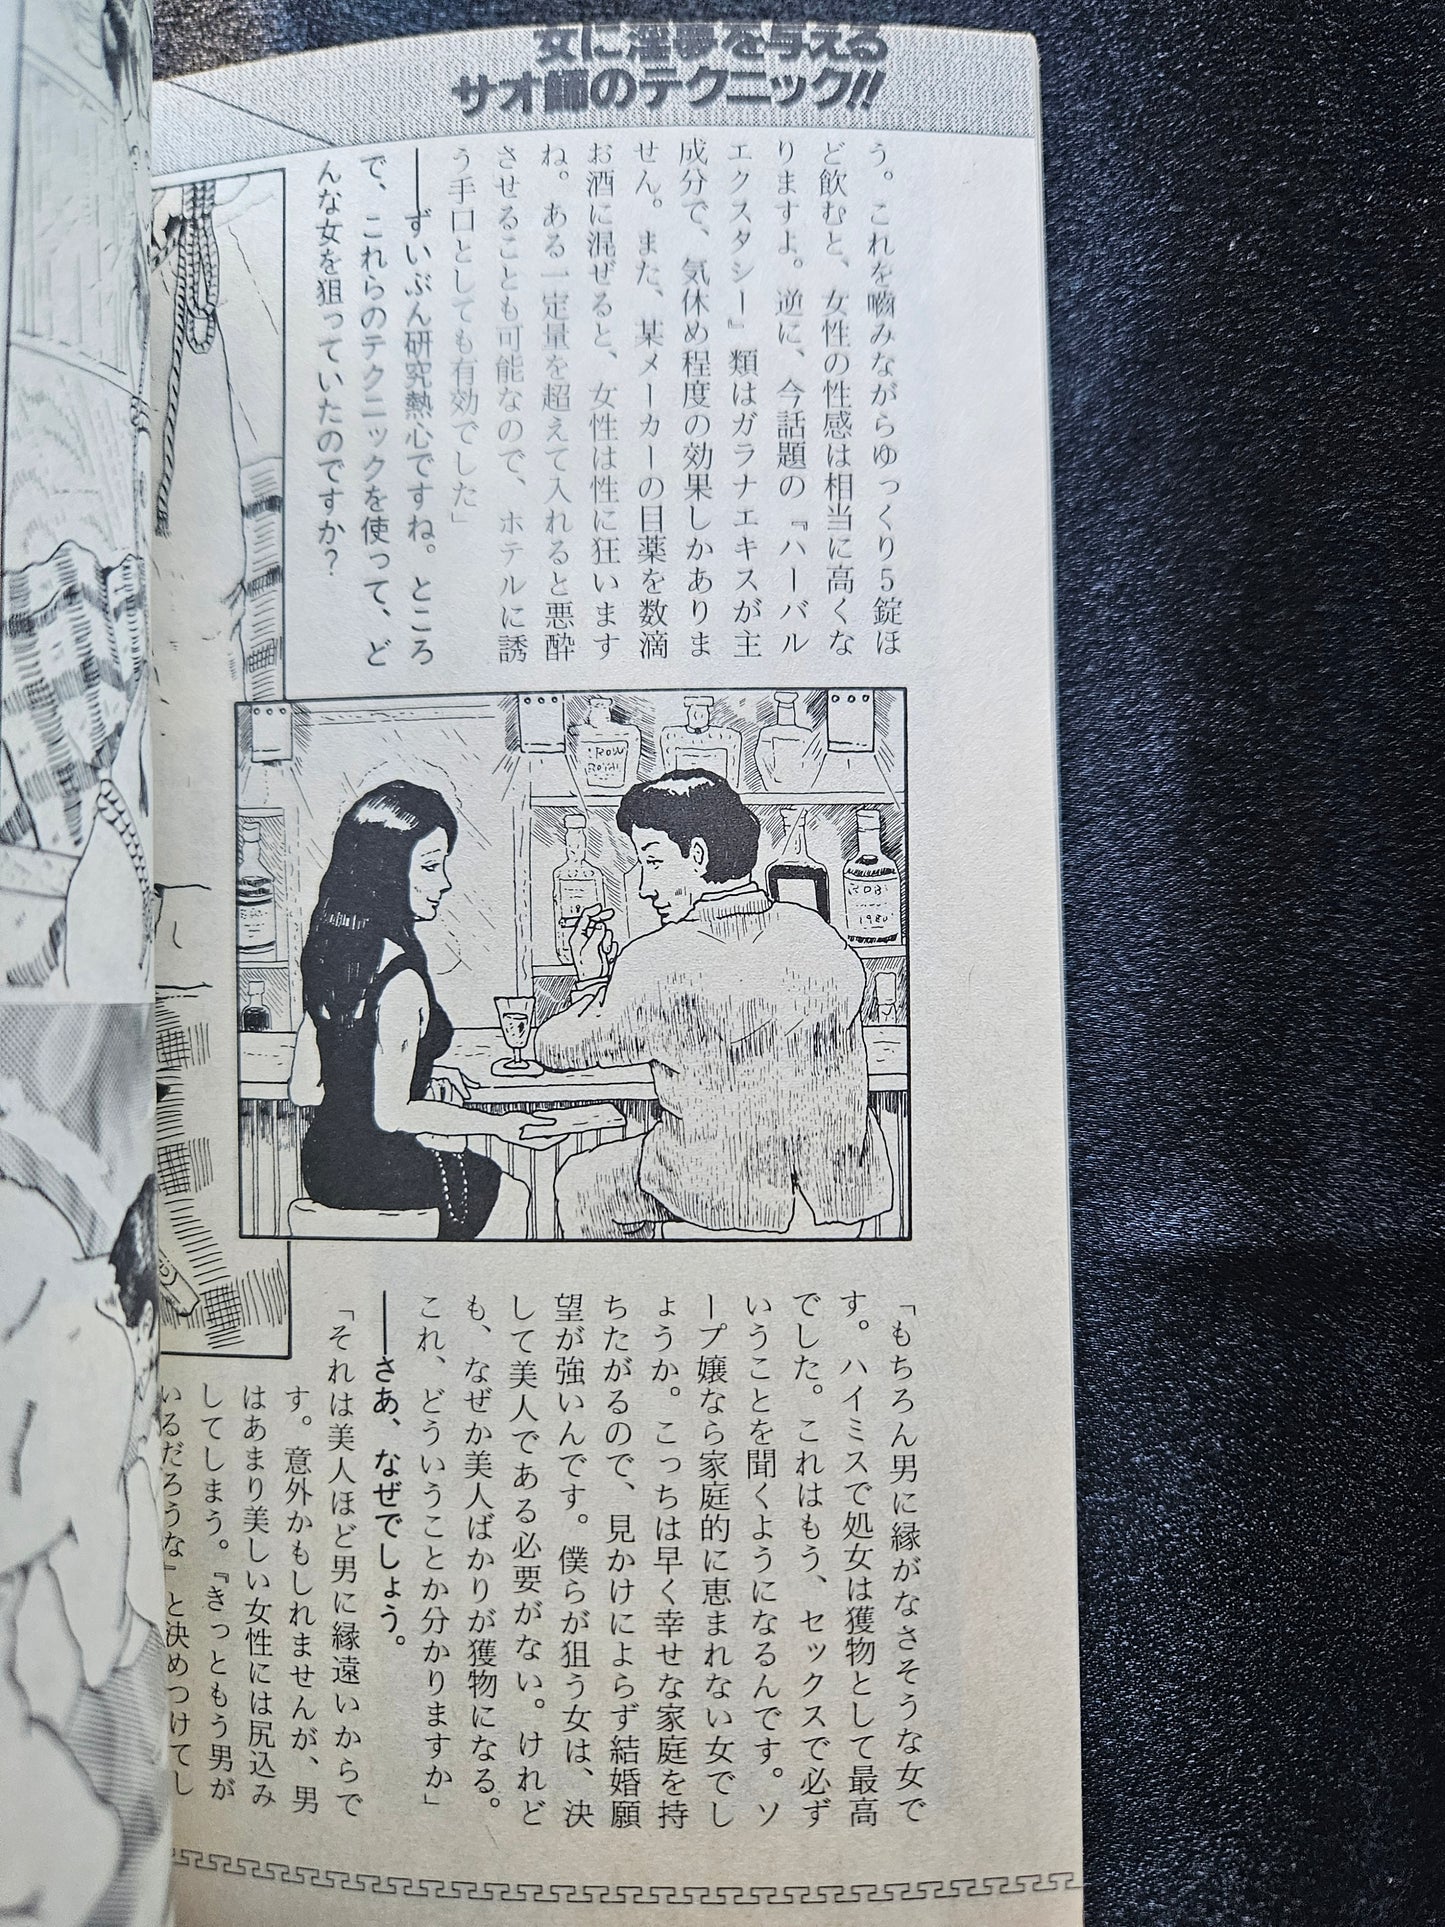 女に淫夢を与える
サオ師のテクニック!!
う。これを嚙みながらゆっくり5錠ほ
ど飲むと、女性の性感は相当に高くな
りますよ。逆に、今話題の『ハーバル
エクスタシー』類はガラナエキスが主
成分で、気休め程度の効果しかありま
せん。また、某メーカーの目薬を数滴
お酒に混ぜると、女性は性に狂います
ね。ある一定量を超えて入れると悪酔
させることも可能なので、ホテルに誘
う手口としても有効でした」
──ずいぶん研究熱心ですね。ところ
で、これらのテクニックを使って、ど
んな女を狙っていたのですか?
ROBI
1980
「もちろん男に縁がなさそうな女で
す。ハイミスで処女は獲物として最高
でした。これはもう、セックスで必ず
いうことを聞くようになるんです。ソ
ープ嬢なら家庭的に恵まれない女でし
ょうか。こっちは早く幸せな家庭を持
ちたがるので、見かけによらず結婚願
望が強いんです。僕らが狙う女は、決
して美人である必要がない。けれど
も、なぜか美人ばかりが獲物になる。
これ、どういうことか分かりますか」
──さあ、なぜでしょう。
「それは美人ほど男に縁遠いからで
す。意外かもしれませんが、男
はあまり美しい女性には尻込み
してしまう。『きっともう男が
いるだろうな」と決めつけてし